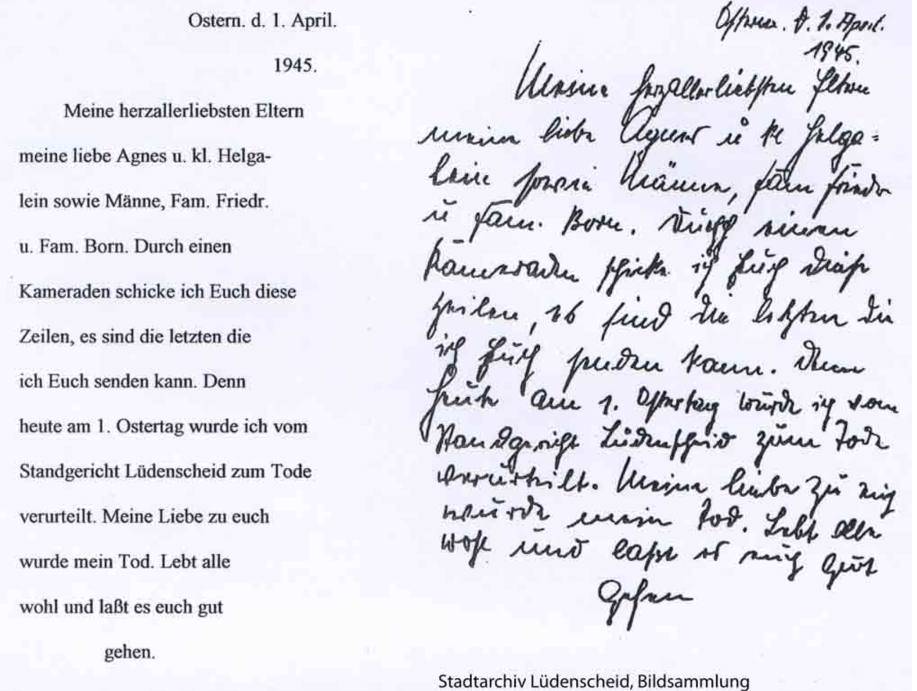 Ostern. d. 1. April.
1945.
Meine herzallerliebsten Eltern
meine liebe Agnes u. kl. Helga-
lein sowie Männe, Fam. Friedr.
u. Fam. Born. Durch einen
Kameraden schicke ich Euch diese
Zeilen, es sind die letzten die
ich Euch senden kann. Denn
heute am 1. Ostertag wurde ich vom
Standgericht Lüdenscheid zum Tode
verurteilt. Meine Liebe zu euch
wurde mein Tod. Lebt alle
wohl und laßt es euch gut
gehen.
Ostern. d. 1. April.
1945.
Meine herzallerliebsten Eltern
meine liebe Agnes u kl Helga=
lein sowie Männe, Fam Friedr
u Fam. Born. Durch einen
Kameraden schicke ich Euch diese
Zeilen, es sind die letzten die
ich Euch senden kann. Denn
heute am 1. Ostertag wurde ich vom
Standgericht Lüdenscheid zum Tode
verurteilt. Meine Liebe zu euch
wurde mein Tod. Lebt alle
wohl und laßt es euch gut
gehen
Stadtarchiv Lüdenscheid, Bildsammlung